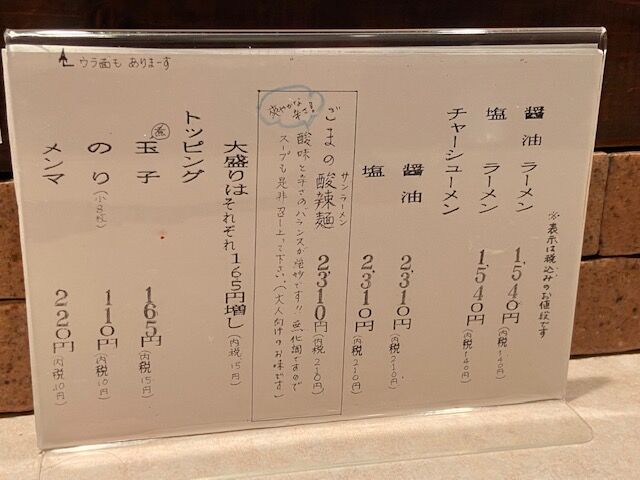 ※表示は税込みのお値段です
醤油 ラーメン 1,540円(内税140円)
塩 ラーメン 1,540円(内税140円)
チャーシューメン
醤油 2,310円(内税210円)
塩 2,310円(内税210円)
ごまの酸辣麺 2,310円(内税210円)
サンラーメン
爽やかな辛さ!
酸味と辛さのバランスが絶妙です!! 無化調ですので
スープも是非召し上って下さい。(大人向けのお味です)
大盛りはそれぞれ165円増し(内税15円)
トッピング
玉子 165円(内税15円)
のり(小8枚) 110円(内税10円)
メンマ 220円(内税10円)
ウラ面も ありまーす